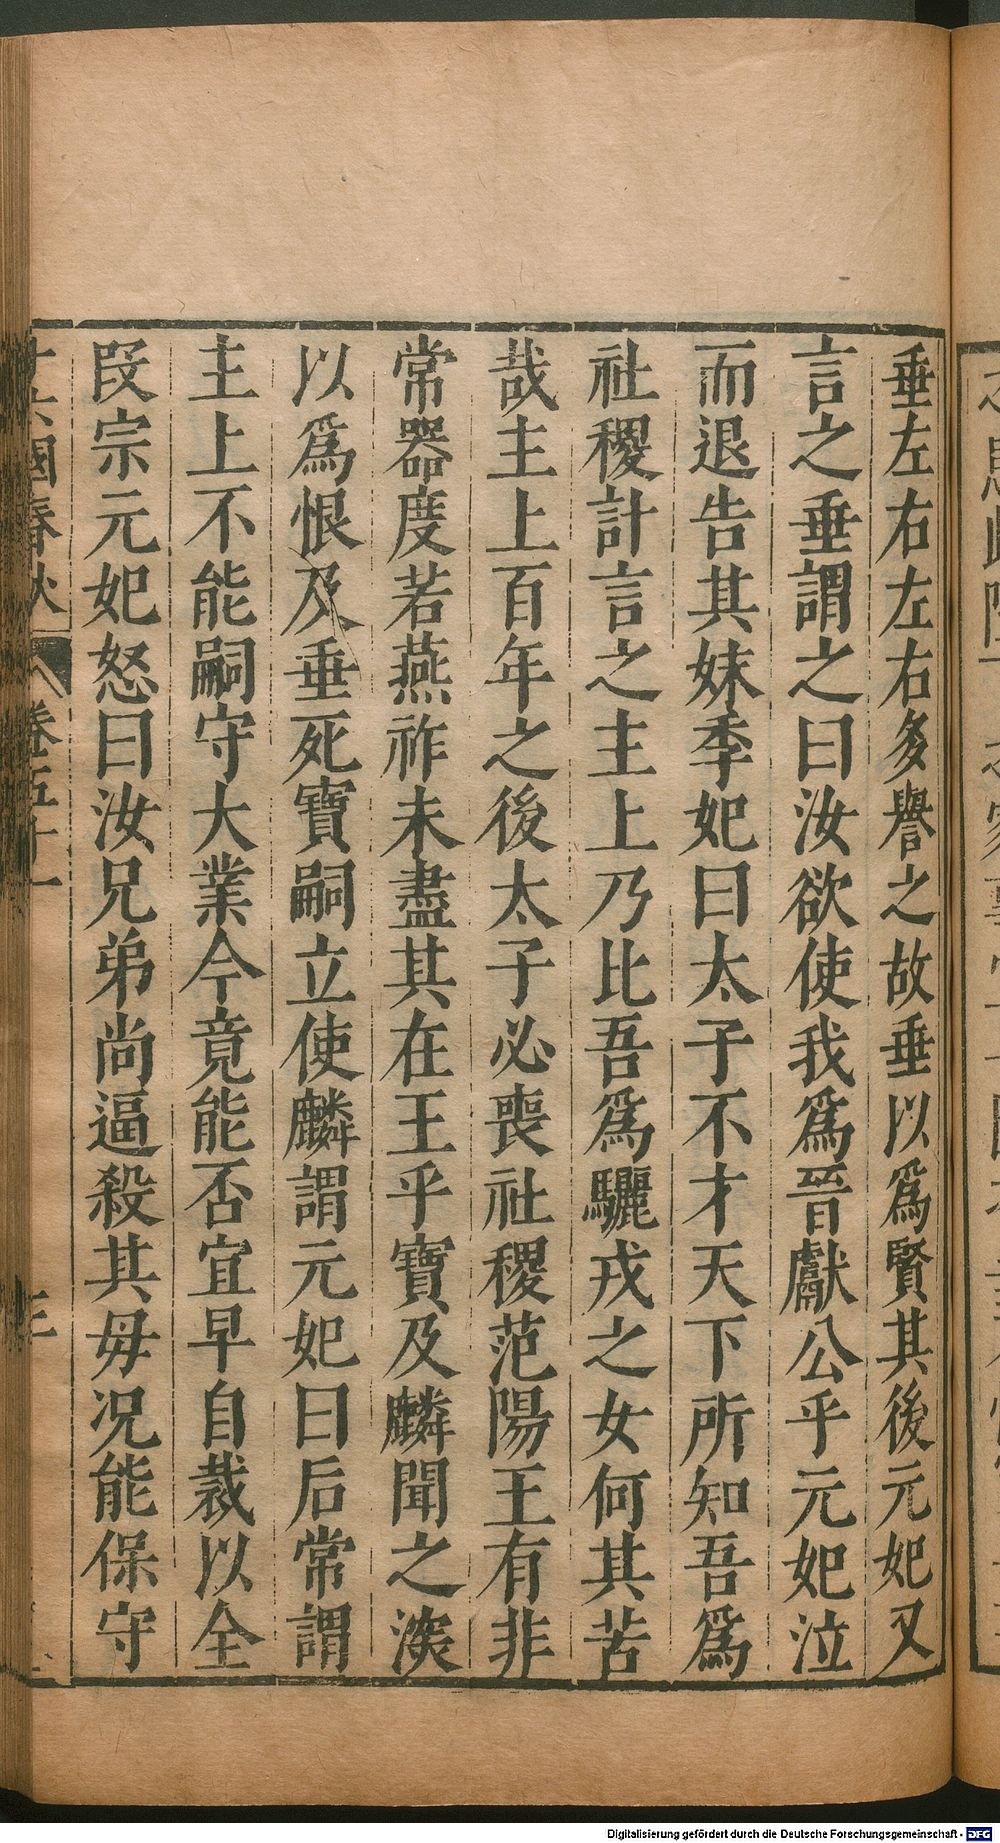 垂左右左右多譽之故垂以爲賢其後元妃又
言之垂謂之曰汝欲使我爲晉獻公乎元妃泣
而退告其妹季妃曰太子不才天下所知吾爲
社稷計言之主上乃比吾爲驪戎之女何其苦
哉主上百年之後太子必喪社稷范陽王有非
常器度若燕祚未盡其在王乎寶及麟聞之深
以爲恨及垂死寶嗣立使麟謂元妃曰后常謂
主上不能嗣守大業今竟能否宜早自裁以全
段宗元妃怒曰汝兄弟尚逼殺其毋況能保守
十六國春秋 卷五十一 三
Digitalisierung gefördert durch die Deutsche Forschungsgemeinschaft - DFG